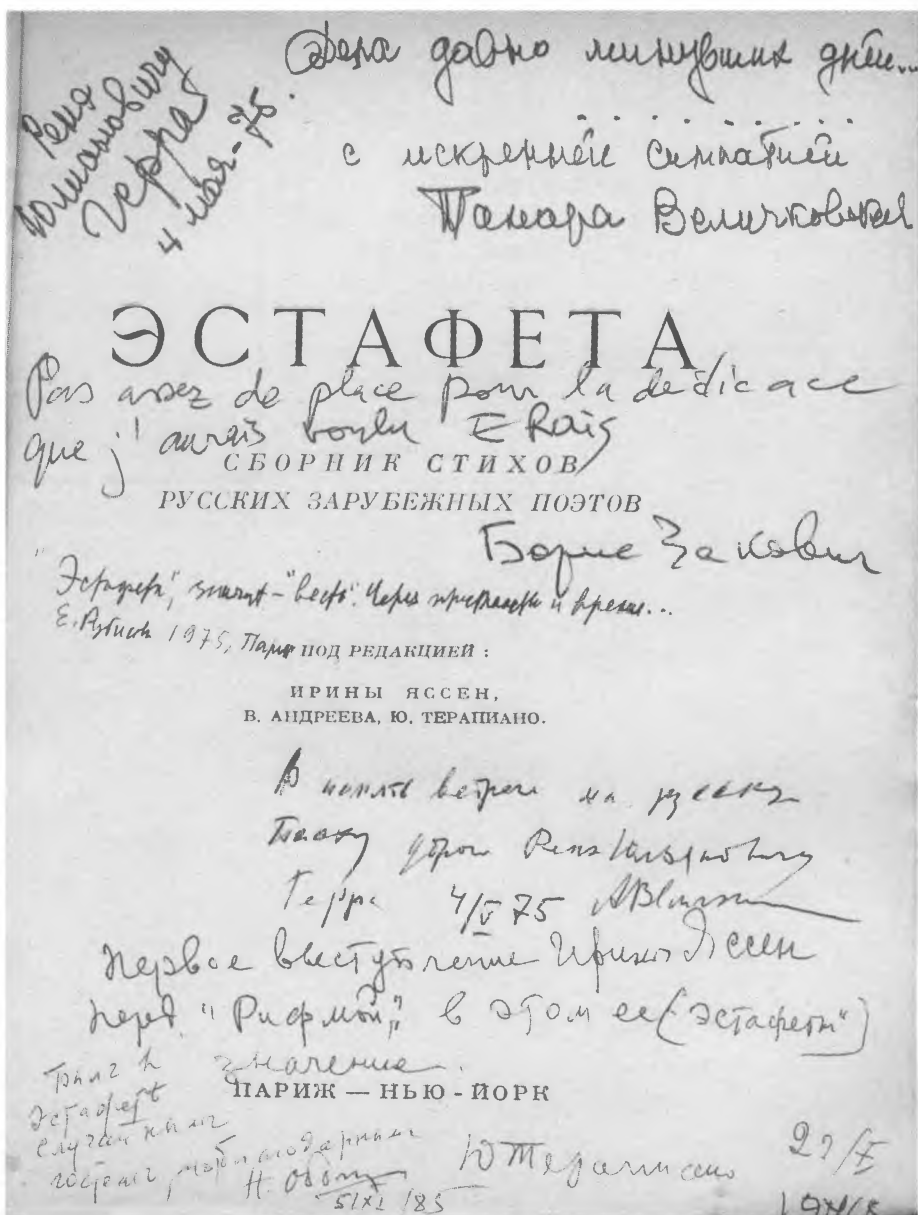 Рене
Юлиановичу
Герра
4 мая-75.
Дела давно минувших дней...
с искренней симпатией
Тамара Величковская
ЭСТАФЕТА
Pas assez de place pour la dédicace
que j'aurais voulu E Rais
СБОРНИК СТИХОВ
РУССКИХ ЗАРУБЕЖНЫХ ПОЭТОВ
Борис Закович
"Эстафета", значит - "весть". Через пространства и время...
Е. 1975, Париж
ПОД РЕДАКЦИЕЙ :
ИРИНЫ ЯССЕН,
В. АНДРЕЕВА, Ю. ТЕРАПИАНО.
В память встречи на
Рене Юлиановичу
Герра 4/V 75
первое выступление Ирины Яссен
перед "Рифмой", в этом ее ("Эстафеты")
значение.
ПАРИЖ — НЬЮ - ЙОРК
Был в
Эстафете
случайным
гостем,
Н.
5/XI /85
Ю Терапиано